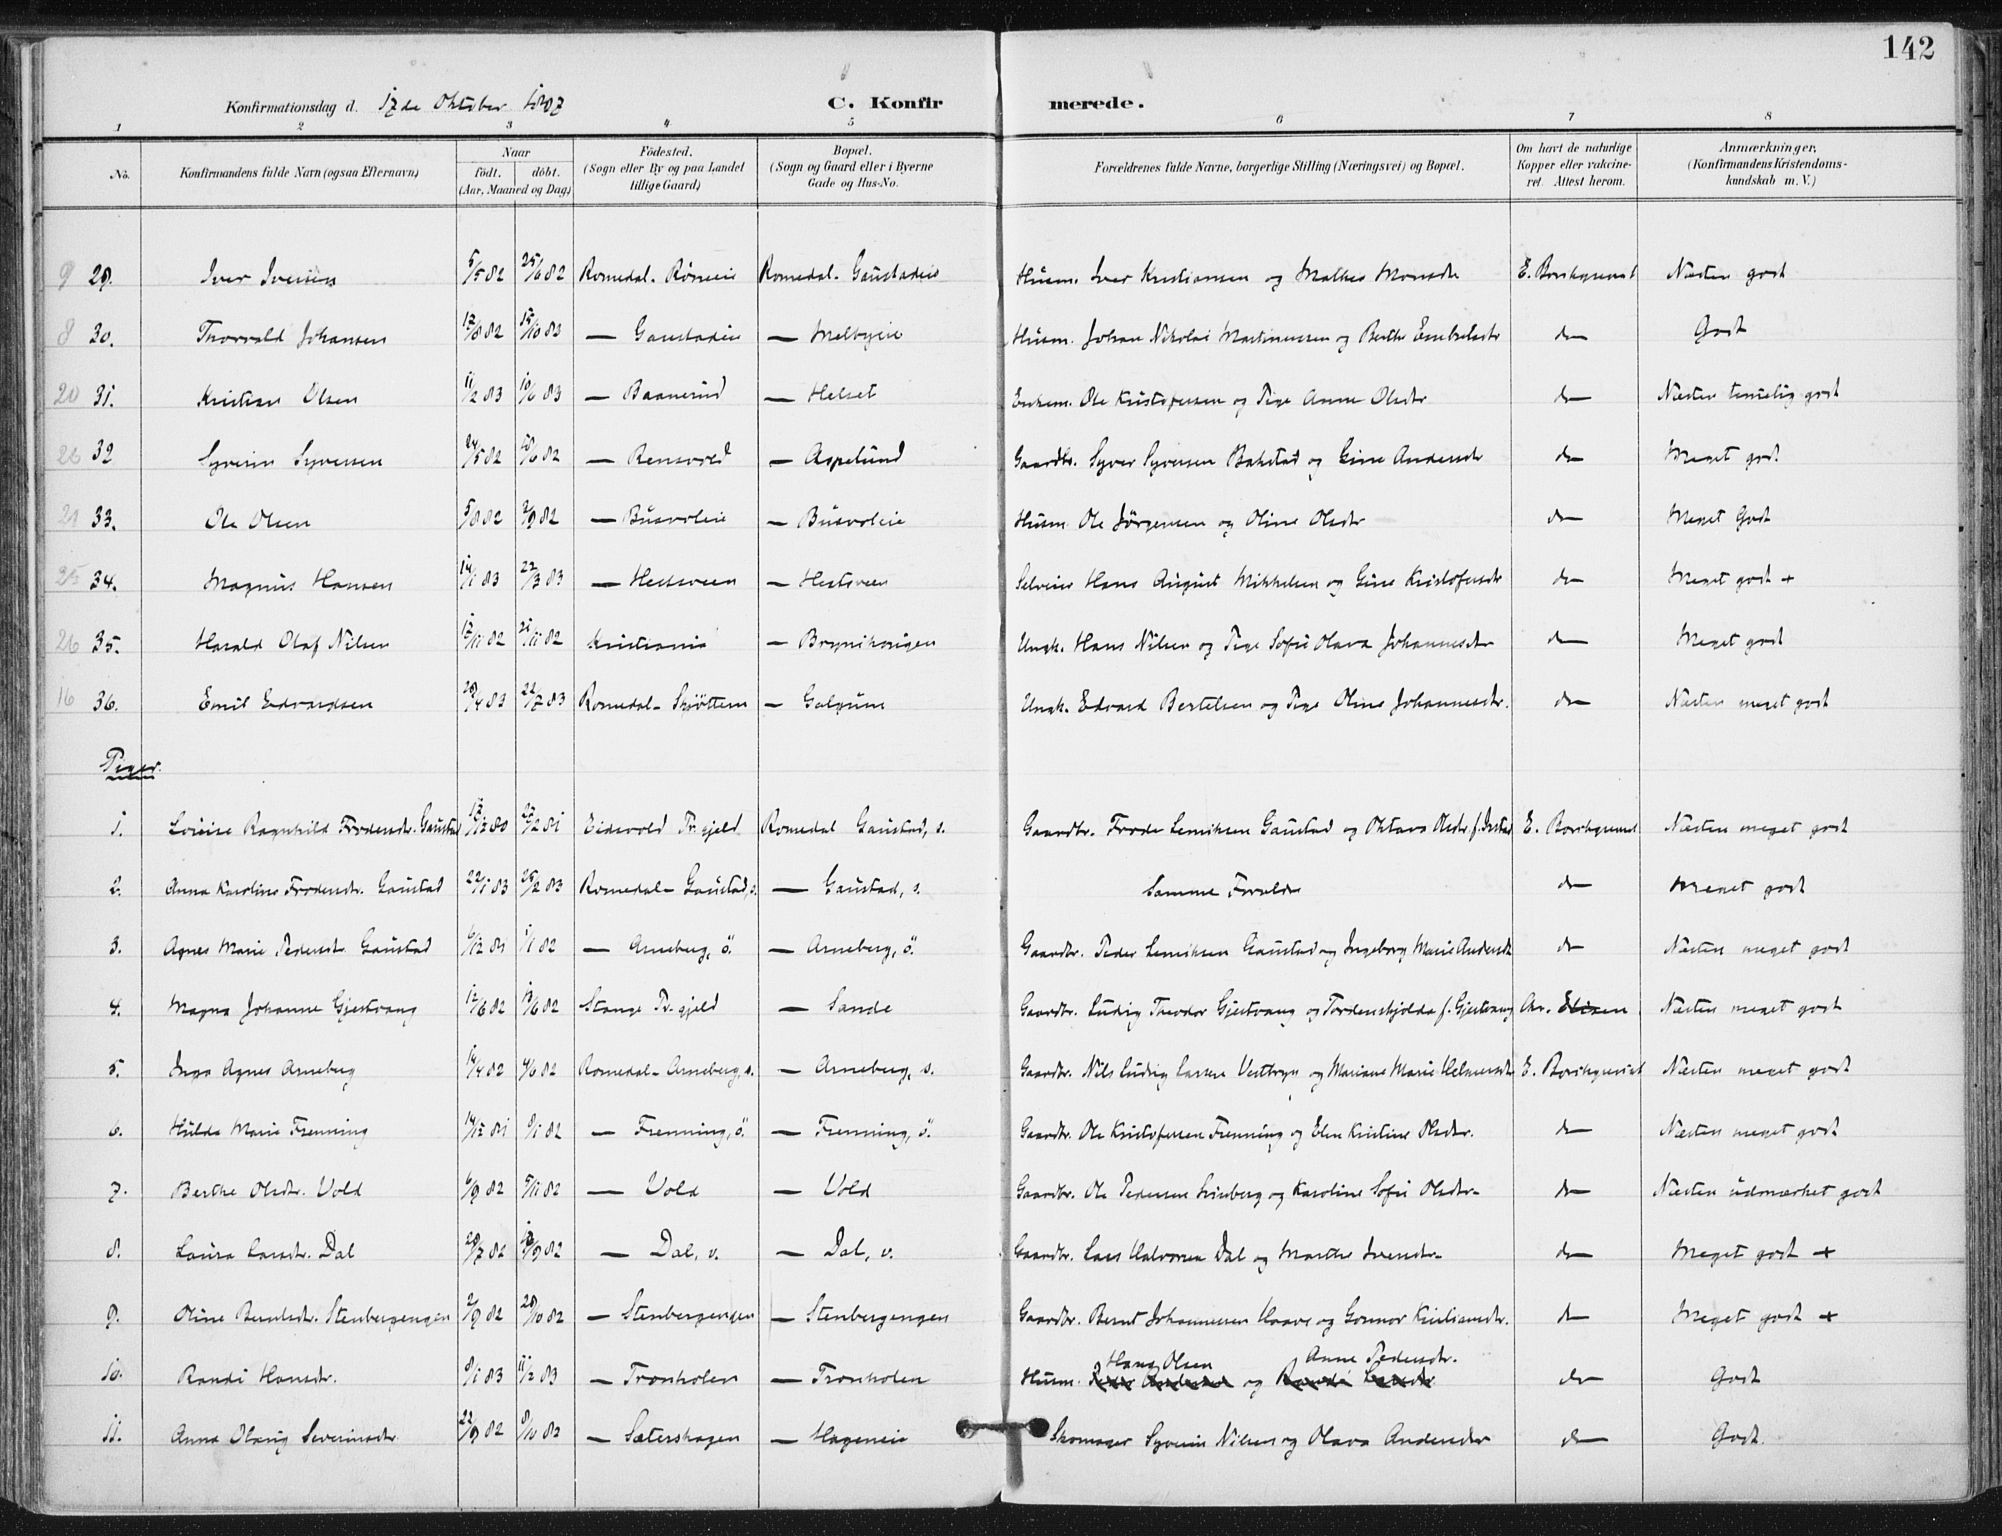 142
Konfirmationsdag d. 17de Oktober 1897 C. Konfirmerede.
1 2 3 4 5 6 7 8
No. Konfirmandens fulde Navn (ogsaa Efternavn) Naar født. døbt. (Aar, Maaned og Dag) Fødested. (Sogn eller By og paa Landet tillige Gaard) Bopæl. (Sogn og Gaard eller i Byerne Gade og Hus-No. Forældrenes fulde Navne, borgerlige Stilling (Næringsvei) og Bopæl. Om havt de naturlige Kopper eller vakcineret. Attest herom. Anmærkninger, (Konfirmandens Kristendomskundskab m. V.)
9 29. Iver Iversen 5/5 82 25/6 82 Romedal. Rønneie Romedal. Gaustadeie Husm. Iver Kristiansen og Mathea Monsdr E. Borchgrevink Næsten godt
8 30. Thorvald Johansen 17/8 82 15/10 82 — Gaustadeie — Melbyeie Husm. Johan Nikolai Martinussen og Berthe Engebretsdr do Godt
20 31. Kristian Olsen 11/2 83 10/6 83 — Baanerud — Helset Enkem. Ole Kristofersen og Pige Anne Olsdr do Næsten temelig godt
32 Syverin Syversen 24/5 82 /6 82 — Rensvold — Aspelund Gaardbr. Syver Syversen Bakstad og Gine Andersdr do Meget godt
33. Ole Olsen 5/8 82 2/9 82 — Busvoleie — Busvoleie Husm. Ole Jørgensen og Oline Olsdr do Meget Godt
25 34. Magnus Hansen 14/1 83 22/3 83 — Hestsveen — Hestsveen Selveier Hans August Mikkelsen og Gine Kristofersdr do Meget godt +
26 35. Harald Olaf Nilsen 12/11 82 /11 82 Kristiania — Brynihaugen Ungk. Hans Nilsen og Pige Sofie Olava Johannesdr do Meget godt
16 36. Emil Edvardsen 20/4 83 22/7 83 Romedal – Skjøttem — Galgum Ungk. Edvard Bertelsen og Pige Oline Johannesdr. do Næsten meget godt
Piger.
1. Louise Ragnhild Frodesdr. Gaustad 13/12 80 27/2 81 Eidsvold Pr.gjeld Romedal Gaustad, s. Gaardbr. Frode Lauritsen Gaustad og Oktava Olsdr. E. Borchgrevink Næsten meget godt
2. Anna Karoline Frodesdr. Gaustad 22/1 83 25/2 83 Romedal – Gaustad, s. — Gaustad, s. Samme Forældre do Meget godt
3. Agnes Marie Pedersdr. Gaustad 6/12 81 1/1 82 — Arneberg, ö. — Arneberg, ö. Gaardbr. Peder Lauritsen Gaustad og Ingeborg Marie Andersdr do Næsten meget godt
4. Magna Johanne Gjestvang 12/6 82 /6 82 Stange Pr.gjeld — Sande Gaardbr. Ludvig Theodor Gjestvang og Tordenskjolda f. Gjestvang Chr. Næsten meget godt
5. Inga Agnes Arneberg 14/4 82 4/6 82 Romedal – Arneberg, s. — Arneberg, s. Gaardbr. Nils Ludvig Larsen Vestbryn og Mariane Marie Helmersdr E. Borchgrevink Næsten meget godt
6. Hulda Marie Frenning 14/12 81 8/1 82 — Frenning, ö. — Frenning, ö. Gaardbr. Ole Kristofersen Frenning og Elen Kristine Olsdr. do Næsten meget godt
7. Berthe Olsdr. Vold 6/9 82 5/11 82 — Vold — Vold Gaardbr. Ole Pedersen Svinberg og Karoline Sofie Olsdr. do Næsten udmærket godt
8. Laura Larsdr. Dal 20/7 82 17/9 82 — Dal, v. — Dal, v. Gaardbr. Lars Halvorsen Dal og Marthe Iversdr. do Meget godt +
9. Oline Berntsdr. Stenbergengen 2/9 82 29/10 82 — Stenbergengen — Stenbergengen Gaardbr. Bernt Johannessen Haave og Gonnor Kristiansdr. do Meget godt +
Hans Olsen Anne Pedersdr.
10. Randi Hansdr. 8/1 83 11/2 83 — Tronholen — Tronholen Husm. Peder Andersen og Randi Larsdr do Godt
11. Anna Olaug Severinsdr. 22/9 82 8/10 82 — Sætershagen — Hageneie Skomager Syverin Nilsen og Olava Andersdr do Godt.